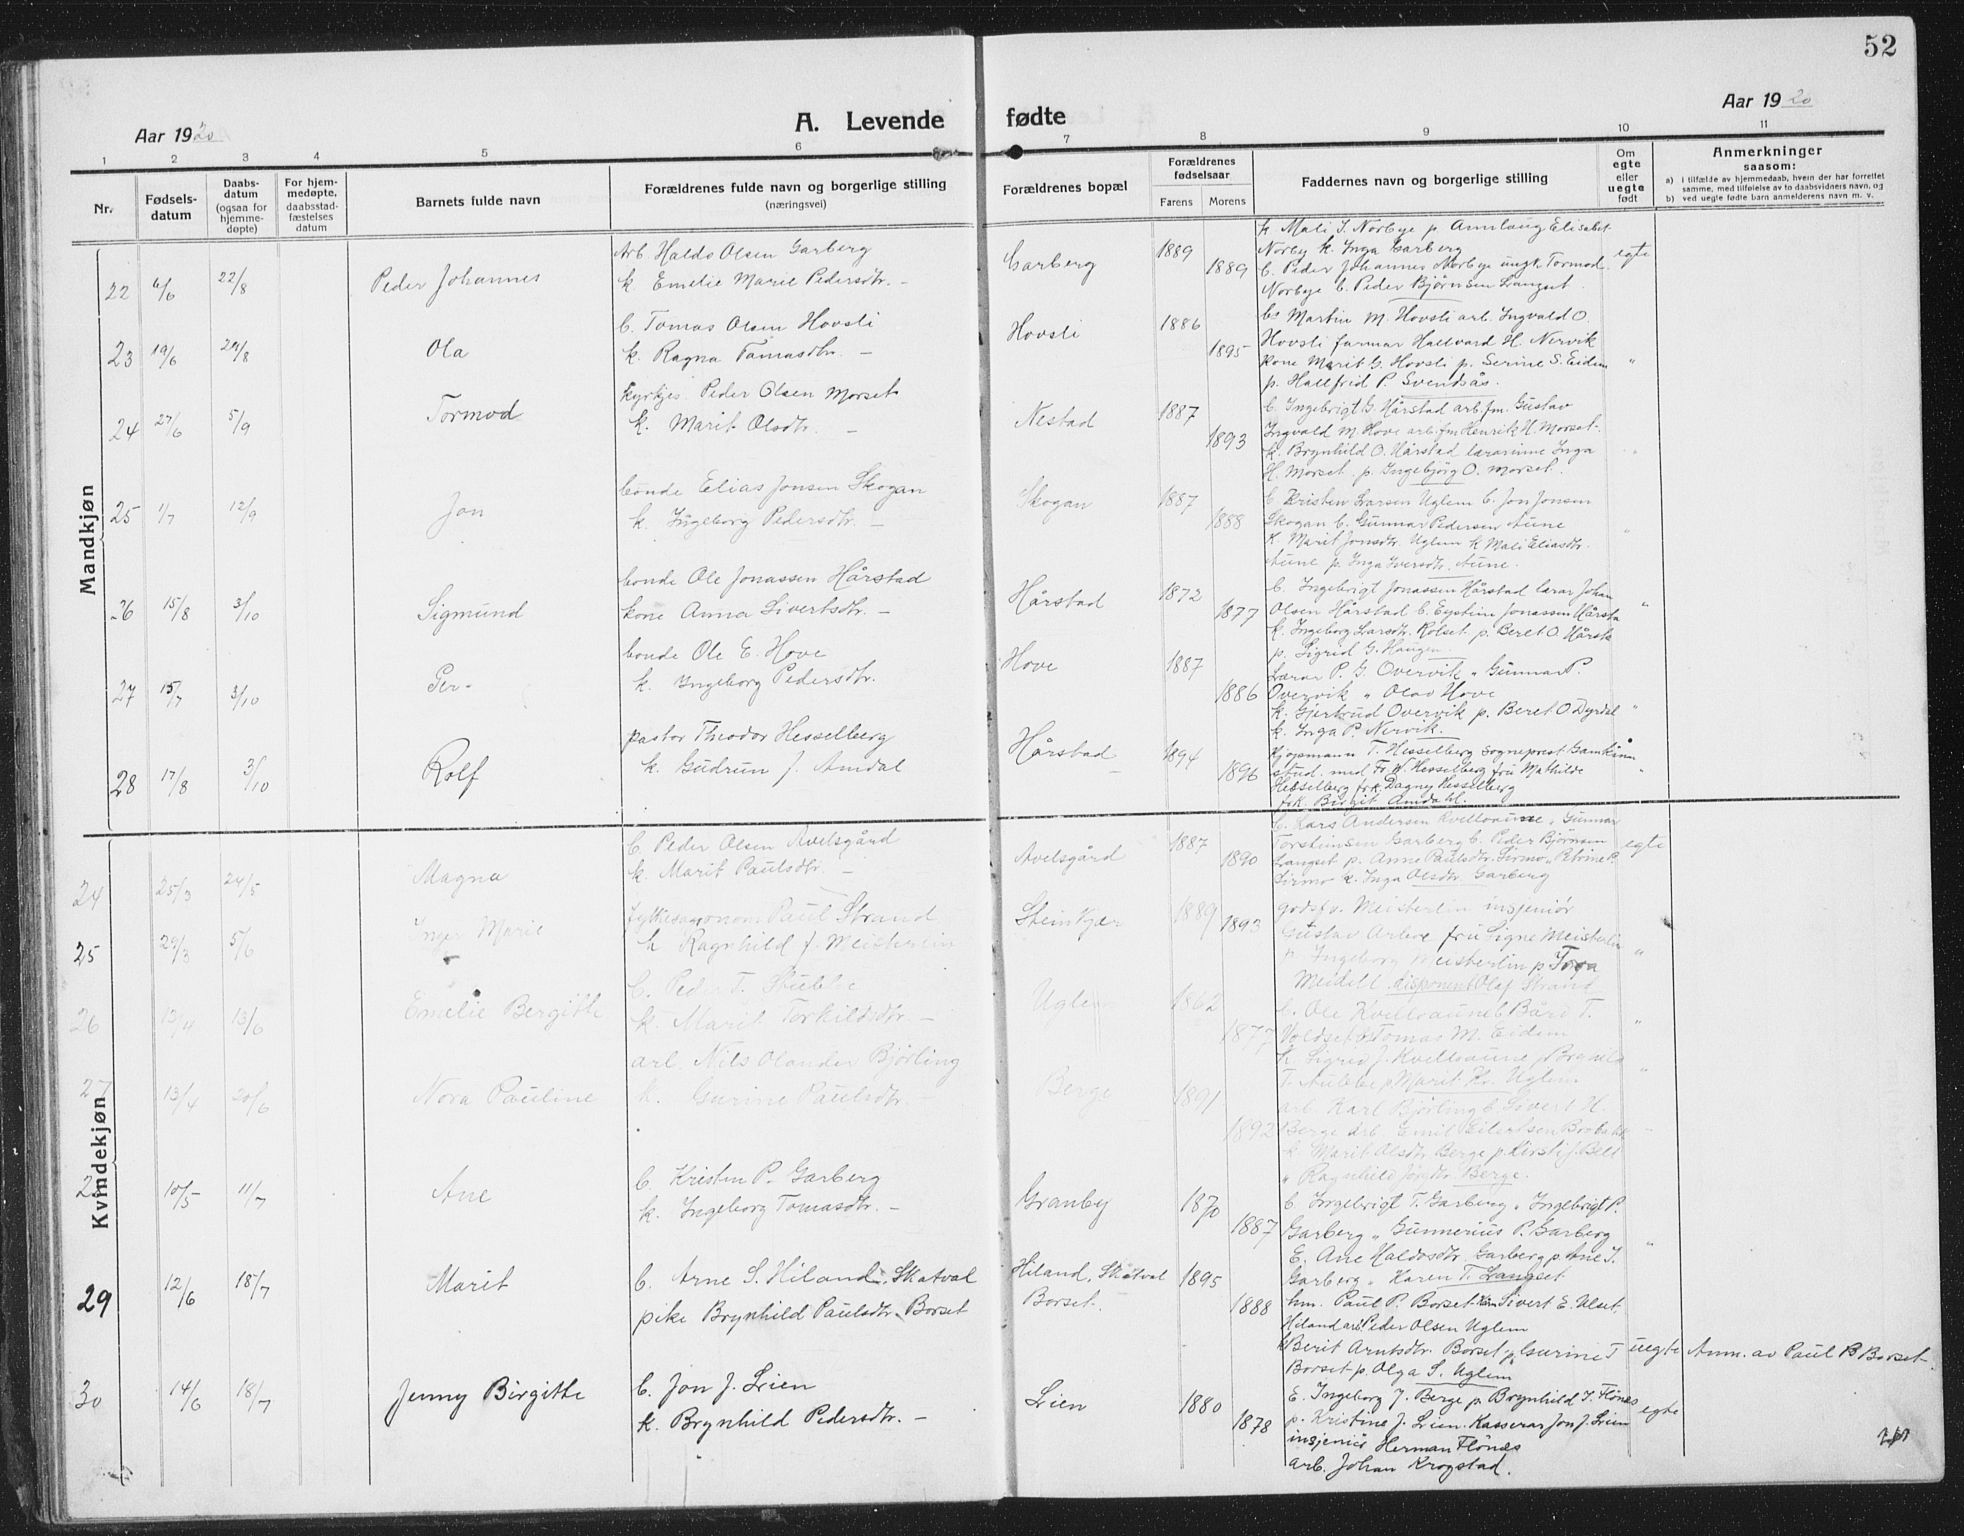 52
Aar 1920
A. Levende
fødte
Aar 1920
1 2 3 4 5 6 7 8 9 10 11
Nr.
Fødsels-
datum
Daabs-
datum
(ogsaa for
hjemme-
døpte)
For hjem-
medøpte,
daabsstad-
fæstelses
datum
Barnets fulde navn
Forældrenes fulde navn og borgerlige stilling
(næringsvei)
Forældrenes bopæl
Forældrenes
fødselsaar
Farens Morens
Faddernes navn og borgerlige stilling
Om
egte
eller
uegte
født
Anmerkninger
saasom:
a) i tilfælde av hjemmedaab, hvem der har forrettet
samme, med tilføielse av to daabsvidners navn, og
b) ved uegte fødte barn anmelderens navn m. v.
Mandkjøn
22 6/6 22/8 Peder Johannes
Arb. Haldo Olsen Garberg
k. Emelie Marie Pedersdtr. —
Garberg 1889 1889
k. Mali S. Norbye p. Annlaug Elisabet
Norby k. Inga Garberg
b. Peder Johannes Norbye ungk Tormod
Norbye b. Peder Bjørnsen Langset.
egte
23 19/6 29/8 Ola
b. Tomas Olsen Hovsli
k. Ragna Tomasdtr. —
Hovsli 1886 1895
Martin M. Hovsli arb. Ingvald O.
Hovsli farmar Hallvard H. Nervik
kone Marit G. Hovsli p. Serine S. Eidem
p. Hallfrid P. Svendsås.
"
24 27/6 5/9 Tormod
kyrkjes. Peder Olsen Morset
k. Marit Olsdtr. —
Nestad 1887 1893
b. Ingebrigt G. Hårstad arb. fm. Gustav
Ingvald M Hove arb. fm Henrik H. Morset.
k. Brynhild O. Hårstad lærarinne Inga
H. Morset p. Ingebjörg O. Morset.
25 1/7 12/9 Jon
bonde Elias Jonsen Skogan
k. Ingeborg Pedersdtr. —
Skogan 1887 1888
b. Kristen Larsen Uglem b. Jon Jonsen
Skogan b. Gunnar Pedersen Aune
k. Marit Jonsdtr. Uglem k Mali Eliasdtr.
Aune p. Inga Iversdtr. Aune.
"
26 15/8 3/10 Sigmund
bonde Ole Jonassen Hårstad
kone Anna Sivertsdtr. —
Hårstad 1872 1877
b. Ingebrigt Jonassen Hårstad lærar Johan
Olsen Hårstad b. Eystein Jonassen Hårsta
k. Ingeborg Larsdtr. Rolset p. Beret O Hårsta
p. Sigrid G. Haugen.
"
27 15/7 3/10 Per
bonde Ole E. Hove
k. Ingeborg Pedersdtr.
Hove 1887 1886
Lærar P. G. Overvik " Gunnar P.
Overvik " Olav Hove
k. Gjertrud Overvik p. Beret O Dyrdal
k. Inga P. Nervik.
"
28 17/8 3/10 Rolf
pastor Theodor Hesselberg
k. Gudrun J. Amdal
Hårstad 1894 1896
Kjøpmann T. Hesselberg sogneprest
stud. med Fr. W. Hesselberg fru Mathilde
Hesselberg frk. Dagny Hesselberg
frk. Birgit Amdahl.
"
Kvindekjøn
24 25/3 24/5 Magna
b. Peder Olsen Avelsgård
k. Marit Paulsdtr. —
Avelsgård 1887 1890
b. Lars Andersen Kvelloaune, Gunnar
Torsteinsen Garberg b. Peder Bjørnsen
Langset p. Anne Paulsdtr. Sirmo, Petrine P.
Sirmo k. Inga Olsdtr. Garberg
egte
25 29/3 5/6 Inger Marie
fylkesagronom Paul Strand
k Ragnhild f. Meisterlin
Steinkjer 1889 1893
godsfv. Meisterlin insjeniør
Gustav Arboe fru Signe Meisterlin
Ingeborg Meisterlin p Tora
Meidell disponent Olaf Strand
"
26 13/4 13/6 Emelie Bergitte
b. Peder T. Stubbe
k. Marit Torkildsdtr. —
Uglem 1862 1877
b. Ole Kvelloaune b Bård T.
Voldset b Tomas M. Eidem
k. Sigrid J. Kvelloaune
p Marit Uglem
"
27 13/4 20/6 Nora Pauline
arb. Nils Olander Björling
k. Gurine Paulsdtr. —
Berge 1891 1892
arb. Karl Björling b. Sivert H.
Berge arb. Emil Eilertsen
k. Marit Olsdtr Berge p Kirsti J. Bell
" Ragnhild Berge.
"
28 10/5 11/7 Ane
b. Kristen P. Garberg
k. Ingeborg Tomasdtr. —
Granby 1870 1887
b. Ingebrigt T. Garberg, Ingebrigt P.
Garberg " Gunnerius P. Garberg
E. Ane Haldosdtr. Garberg p. Ane T.
Garberg " Karen T. Langset
"
29 12/6 18/7 Marit
b. Arne S. Hiland, Skatval
pike Brynhild Paulsdtr. Borset
Hiland, Skatval
Borset. 1895 1888
hm. Paul P. Borset Sivert E. Ulset
Hiland arb. Peder Olsen Uglem
Berit Arntsdtr. Borset p. Gurine T
Borset p. Olga S. Uglem
uegte Anm. av Paul P Borset.
30 14/6 18/7 Jenny Birgitte
b. Jon J. Lien
k. Brynhild Pedersdtr. —
Lien 1880 1878
E. Ingeborg J. Berge p. Brynhild T. Flönes
p. Kristine J. Lien. Kasserar Jon J. Lien
insjeniör Herman Flönes
arb. Johan Krogstad.
egte